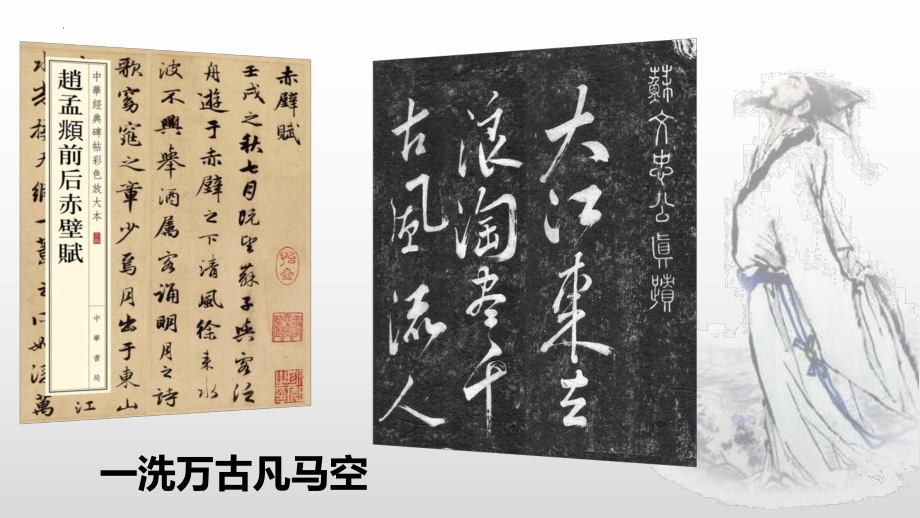 中華經典碑帖彩色放大本
趙孟頫前后赤壁賦
中華書局
赤壁賦
壬戌之秋七月既望蘇子與客泛
舟遊于赤壁之下清風徐来水
波不興舉酒属客誦明月之詩
歌窈窕之章少焉月出于東山
江
蘇文忠公眞蹟
大江東去
浪淘盡千
古風流人
一洗万古凡马空